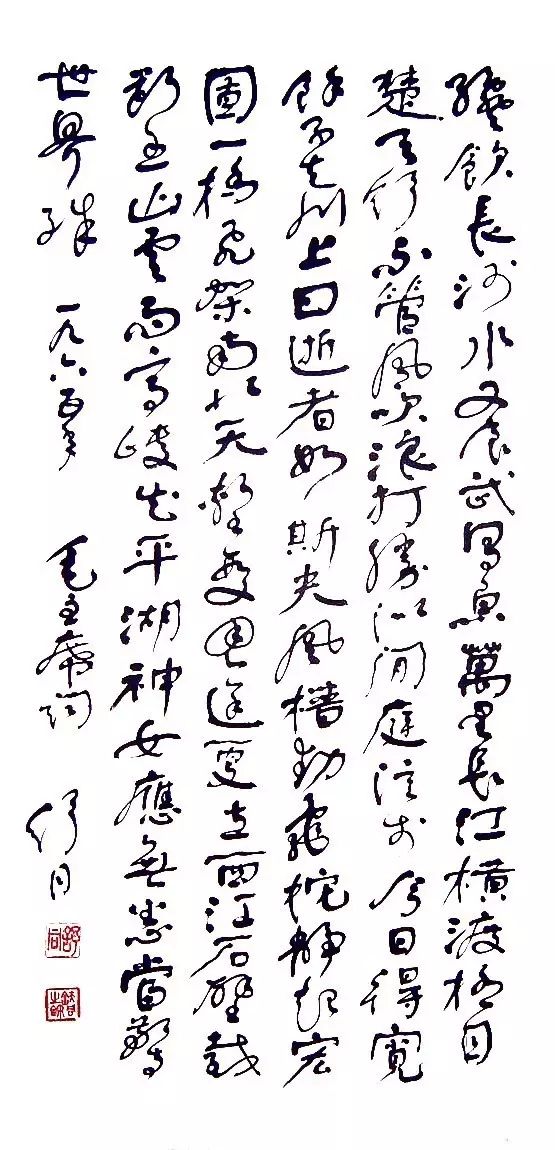 纔飲長沙水又食武昌魚萬里長江橫渡極目
楚天舒不管風吹浪打勝似閒庭信步今日得寬
餘子在川上曰逝者如斯夫風檣動龜蛇靜起宏
圖一橋飛架南北天塹變通途更立西江石壁截
斷巫山雲雨高峽出平湖神女應無恙當驚
世界殊 一九六五年 毛主席詞 舒同
舒同